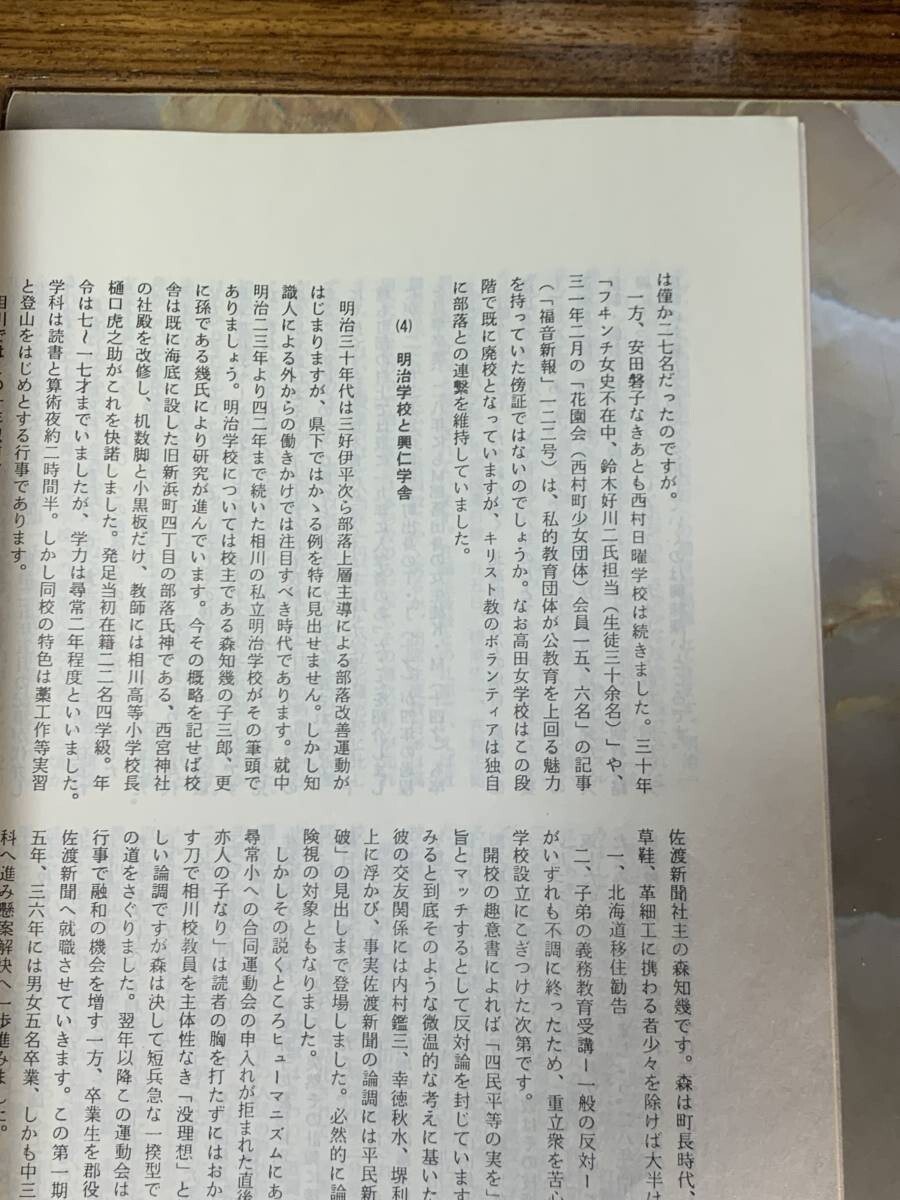 は僅か二七名だったのですが。
一方、安田磐子なきあとも西村日曜学校は続きました。三十年
「フヰンチ女史不在中、鈴木好川二氏担当（生徒三十余名）」や、
三一年二月の「花園会（西村町少女団体）会員一五、六名」の記事
（「福音新報」一二二号）は、私的教育団体が公教育を上回る魅力
を持っていた傍証ではないのでしょうか。なお高田女学校はこの段
階で既に廃校となっていますが、キリスト教のボランティアは独自
に部落との連繫を維持していました。
(4) 明治学校と興仁学舎
明治三十年代は三好伊平次ら部落上層主導による部落改善運動が
はじまりますが、県下ではかゝる例を特に見出せません。しかし知
識人による外からの働きかけでは注目すべき時代であります。就中
明治二三年より四二年まで続いた相川の私立明治学校がその筆頭で
ありましょう。明治学校については校主である森知幾の子三郎、更
に孫である幾氏により研究が進んでいます。今その概略を記せば校
舎は既に海底に設した旧新浜町四丁目の部落氏神である、西宮神社
の社殿を改修し、机数脚と小黒板だけ、教師には相川高等小学校長
樋口虎之助がこれを快諾しました。発足当初在籍二二名四学級。年
令は七〜一七才までいましたが、学力は尋常二年程度といいました。
学科は読書と算術夜約二時間半。しかし同校の特色は藁工作等実習
と登山をはじめとする行事であります。
佐渡新聞社主の森知幾です。森は町長時代、
草鞋、革細工に携わる者少々を除けば大半は
一、北海道移住勧告
二、子弟の義務教育受講ー一般の反対ー
がいずれも不調に終ったため、重立衆を苦心
学校設立にこぎつけた次第です。
開校の趣意書によれば「四民平等の実を」
旨とマッチするとして反対論を封じています
みると到底そのような微温的な考えに基いた
彼の交友関係には内村鑑三、幸徳秋水、堺利
上に浮かび、事実佐渡新聞の論調には平民新
破」の見出しまで登場しました。必然的に論
険視の対象ともなりました。
しかしその説くところヒューマニズムにあ
尋常小への合同運動会の申入れが拒まれた直後
亦人の子なり」は読者の胸を打たずにはおか
す刀で相川校教員を主体性なき「没理想」と
しい論調ですが森は決して短兵急な一揆型で
の道をさぐりました。翌年以降この運動会は
行事で融和の機会を増す一方、卒業生を郡役
佐渡新聞へ就職させていきます。この第一期
五年、三六年には男女五名卒業、しかも中三
科へ進み懸案解決へ一歩進みました。